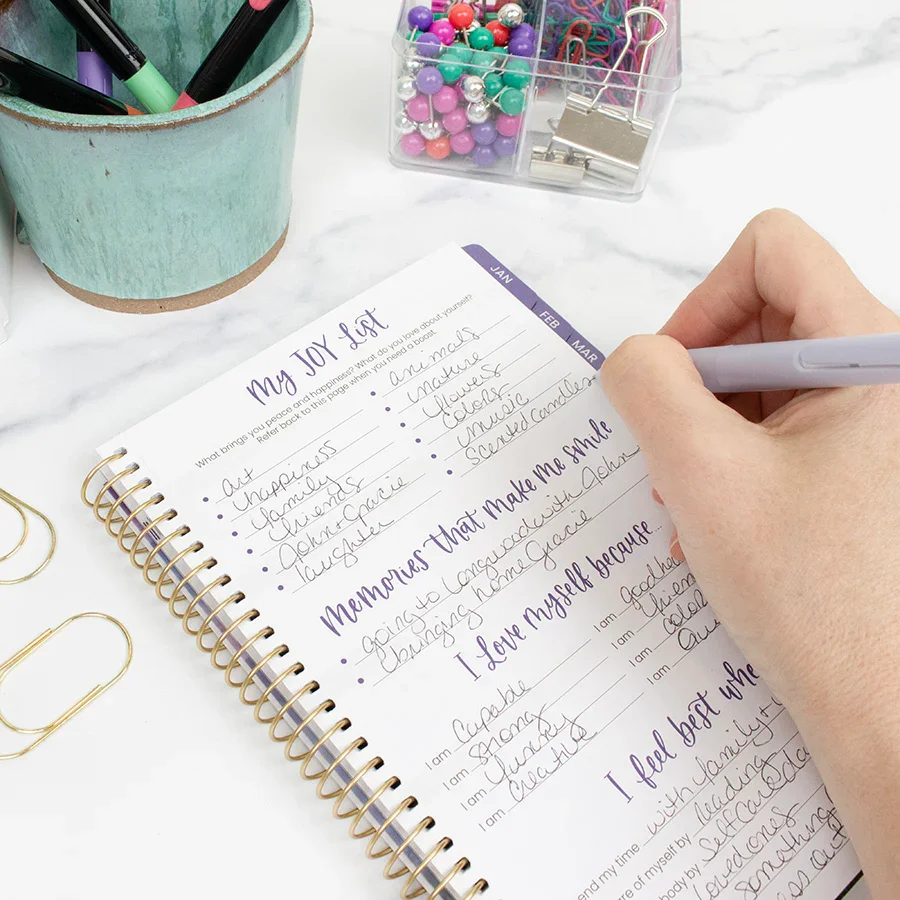 JAN
FEB
MAR
My JOY List
What brings you peace and happiness? What do you love about yourself?
Refer back to this page when you need a boost.
art
happiness
family
friends
John + Gracie
laughter
animals
nature
flowers
colors
music
Scented candles
Memories that make me smile
going to Longwood with John
bringing home Gracie
I love myself because...
I am Capable
I am Strong
I am funny
I am creative
I am
I am
I am
I am
I feel best whe
end my time with family +
re of myself by leading
body by Self care
loved ones
something